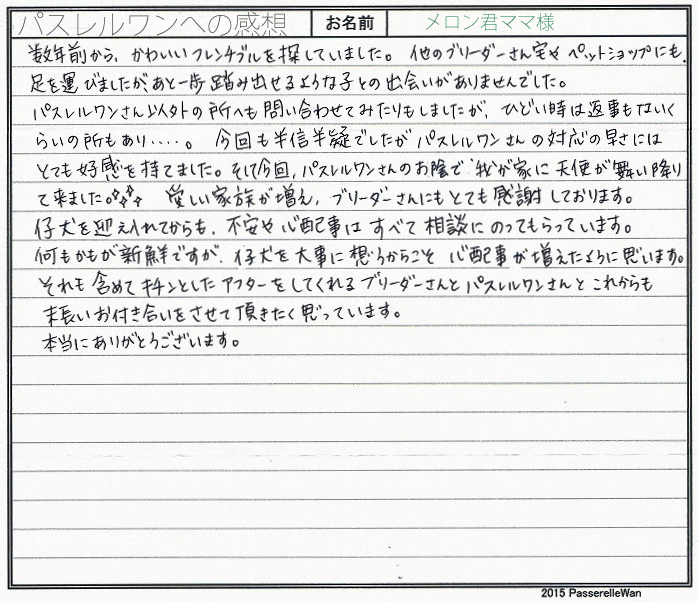 パスレルワンへの感想 お名前 メロン君ママ様
数年前から、かわいいフレンチブルを探していました。 他のブリーダーさん宅やペットショップにも、
足を運びましたがあと一歩踏み出せるような子との出会いがありませんでした。
パスレルワンさん以外の所へも問い合わせてみたりもしましたが、ひどい時は返事もないく
らいの所もあり・・・・・。 今回も半信半疑でしたがパスレルワンさんの対応の早さには
とても好感を持てました。そして今回、パスレルワンさんのお陰で我が家に天使が舞い降り
て来ました。 愛しい家族が増え、ブリーダーさんにもとても感謝しております。
仔犬を迎え入れてからも、不安や心配事はすべて相談にのってもらっています。
何もかもが新鮮ですが、仔犬を大事に想うからこそ心配事が増えたように思います。
それも含めてキチンとしたアフターをしてくれるブリーダーさんとパスレルワンさんとこれからも
末長いお付き合いをさせて頂きたく思っています。
本当にありがとうございます。
2015 PasserelleWan